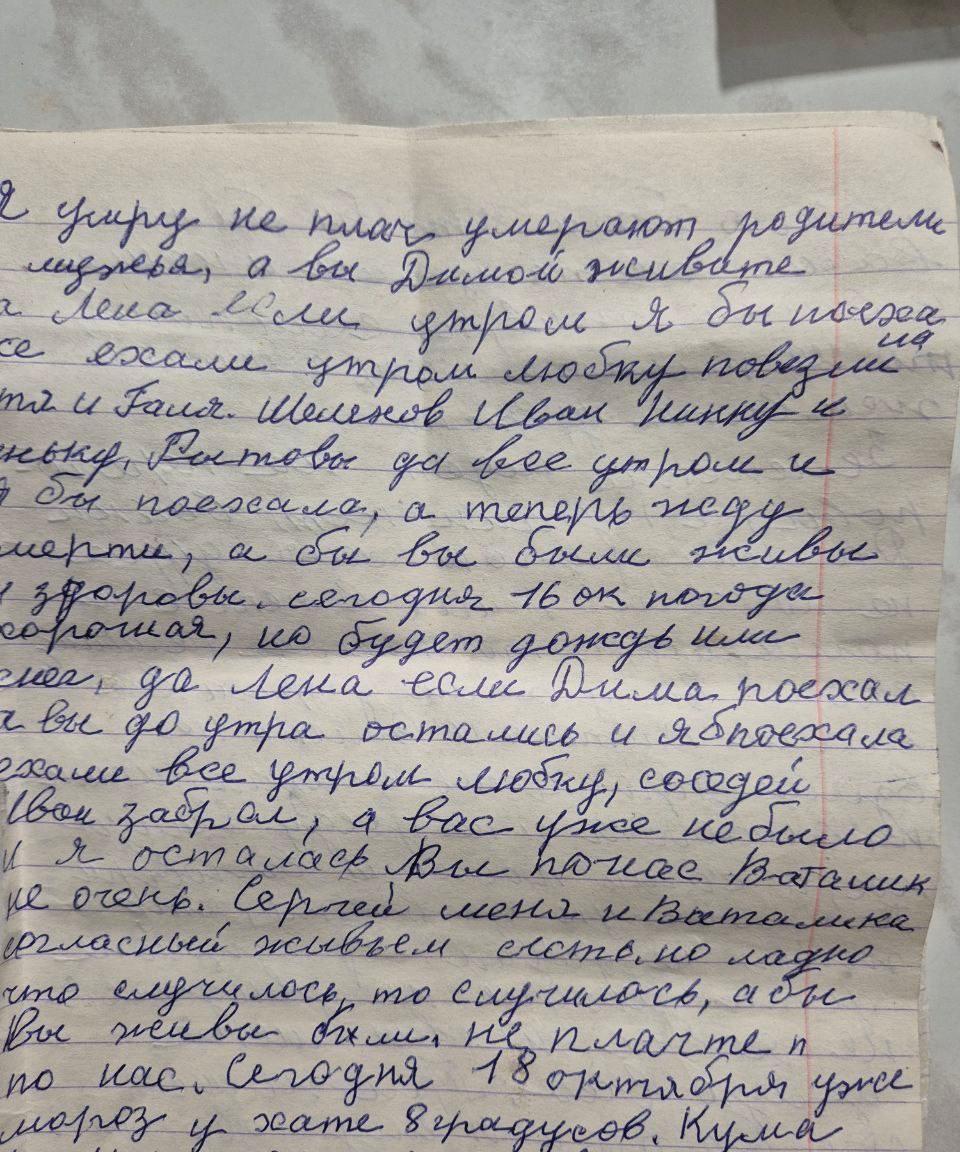 я умру не плач умерают родители
а вы Димой живите
а Лена если утром я бы поеха
се ехали утром Любку повезли на
тя и Галя. Шелехов Иван Нинку и
ньку, да все утром и
я бы поехала, а теперь жду
мерти, а бы вы были живы
и здоровы. сегодня 16 ок погода
хорошая, но будет дождь или
снег, да Лена если Дима поехал
а вы до утра остались и я б поехала
ехали все утром Любку, соседей
Иван забрал, а вас уже небыло
и я осталась Вы понас Ваталик
не очень. Сергей меня и Ваталика
согласный жывьем сьсть, но ладно
что случилось, то случилось, а бы
Вы живы были. не плачте п
по нас. Сегодня 18 октября уже
мороз у хате 8 градусов. Кума